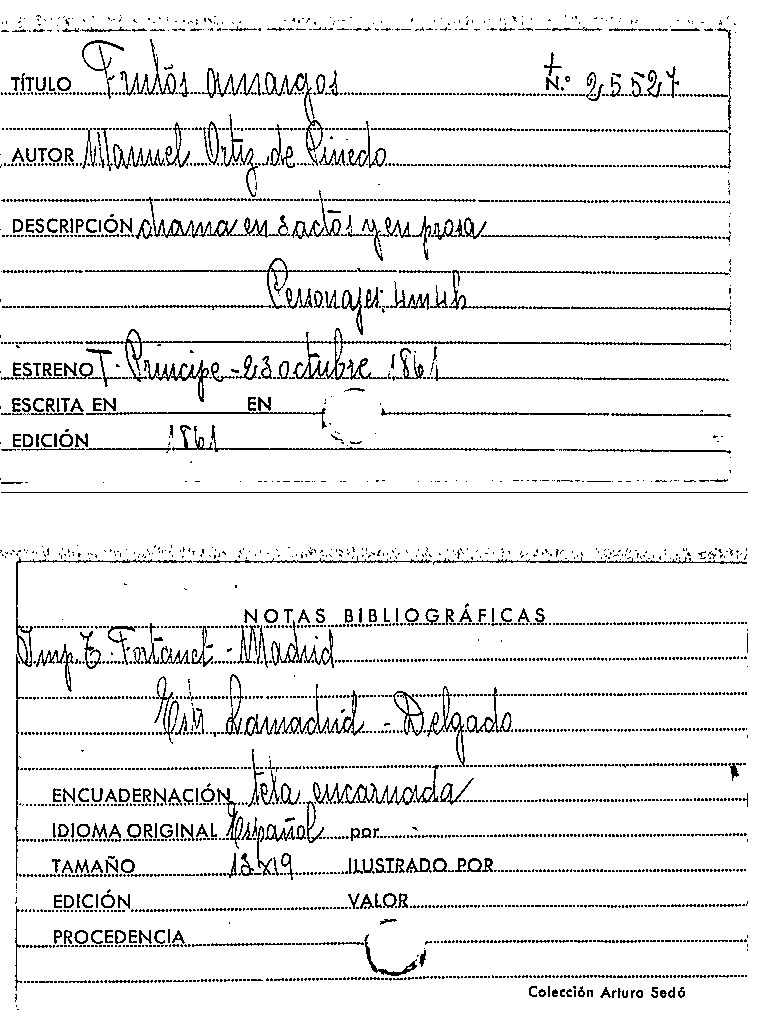 TÍTULO Frutos amargos N.º 25527
AUTOR Manuel Ortiz de Pinedo
DESCRIPCIÓN drama en 3 actos y en prosa
Personajes: 4m4h
ESTRENO T. Príncipe - 23 octubre 1861
ESCRITA EN EN
EDICIÓN 1861
NOTAS BIBLIOGRÁFICAS
Imp. T. Fortanet - Madrid
Estr. Lamadrid - Delgado
ENCUADERNACIÓN tela encarnada
IDIOMA ORIGINAL Español por -
TAMAÑO 13x19 ILUSTRADO POR
EDICIÓN VALOR
PROCEDENCIA
Colección Arturo Sedó